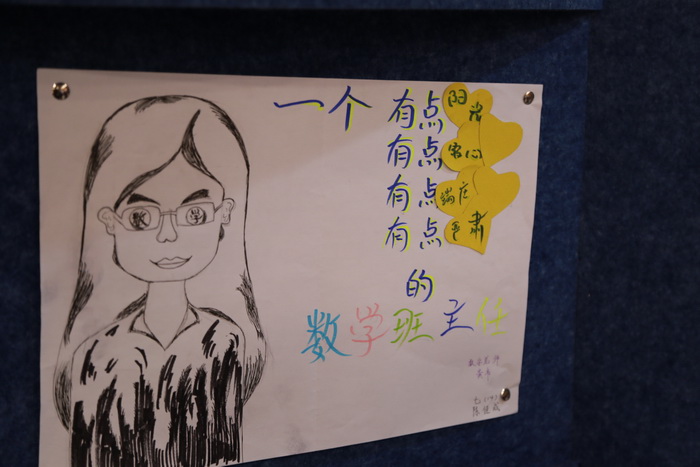 一个 有点 阳光
有点
有点 端庄
有点 严肃
数 学
的
数学班主任